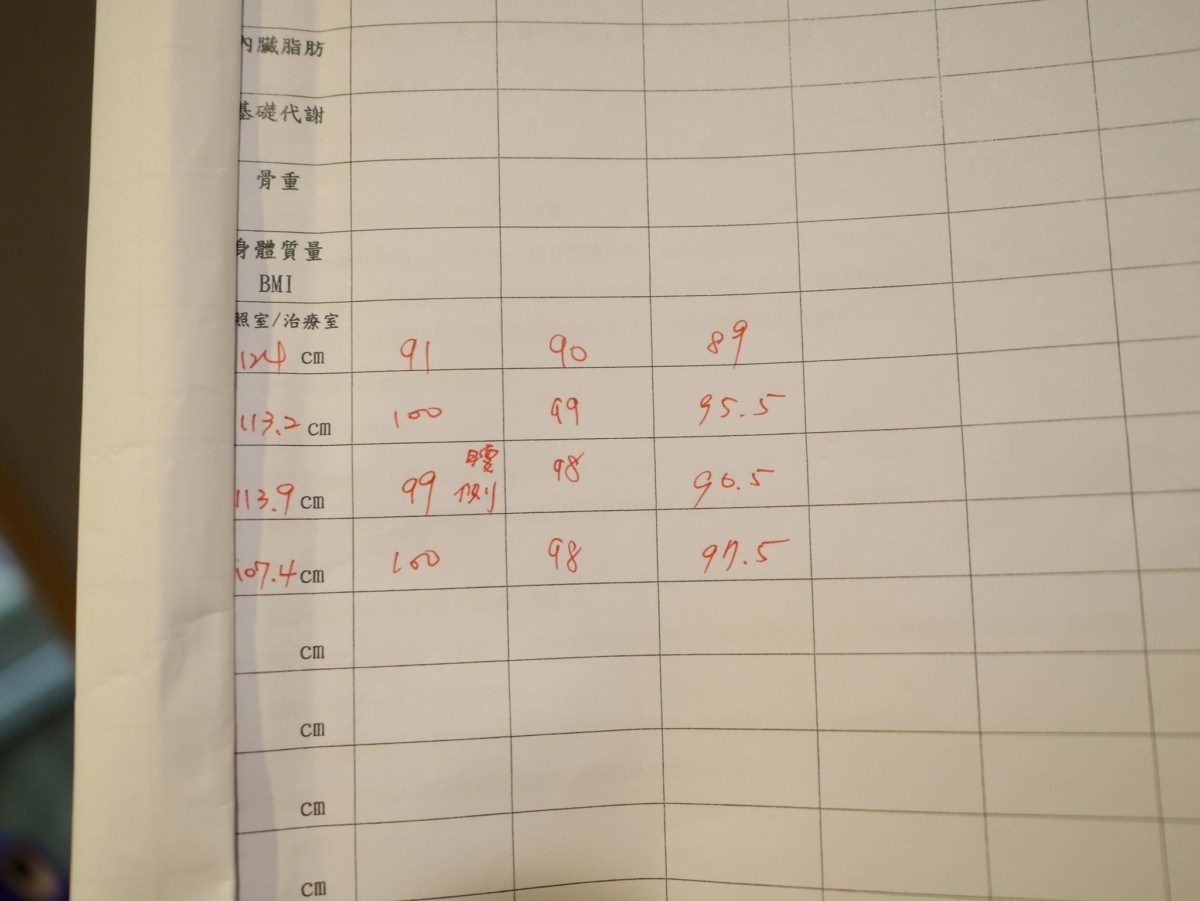 內臟脂肪
基礎代謝
骨重
身體質量
BMI
照室/治療室
124 cm 91 90 89
113.2 cm 100 99 95.5
113.9 cm 99 98 96.5
107.4 cm 100 98 97.5
cm
cm
cm
cm